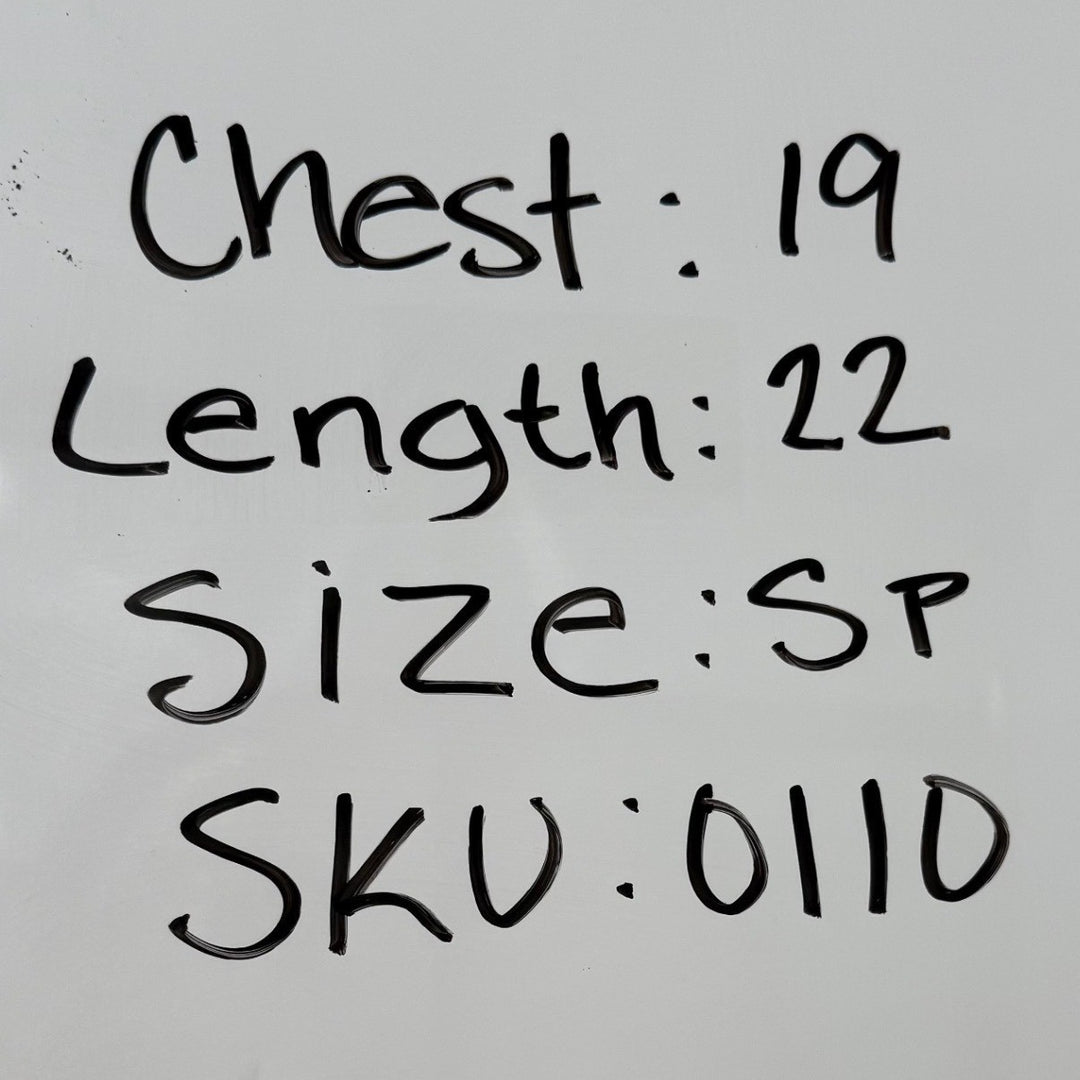 Chest: 19
Length: 22
Size: SP
SKU: 0110